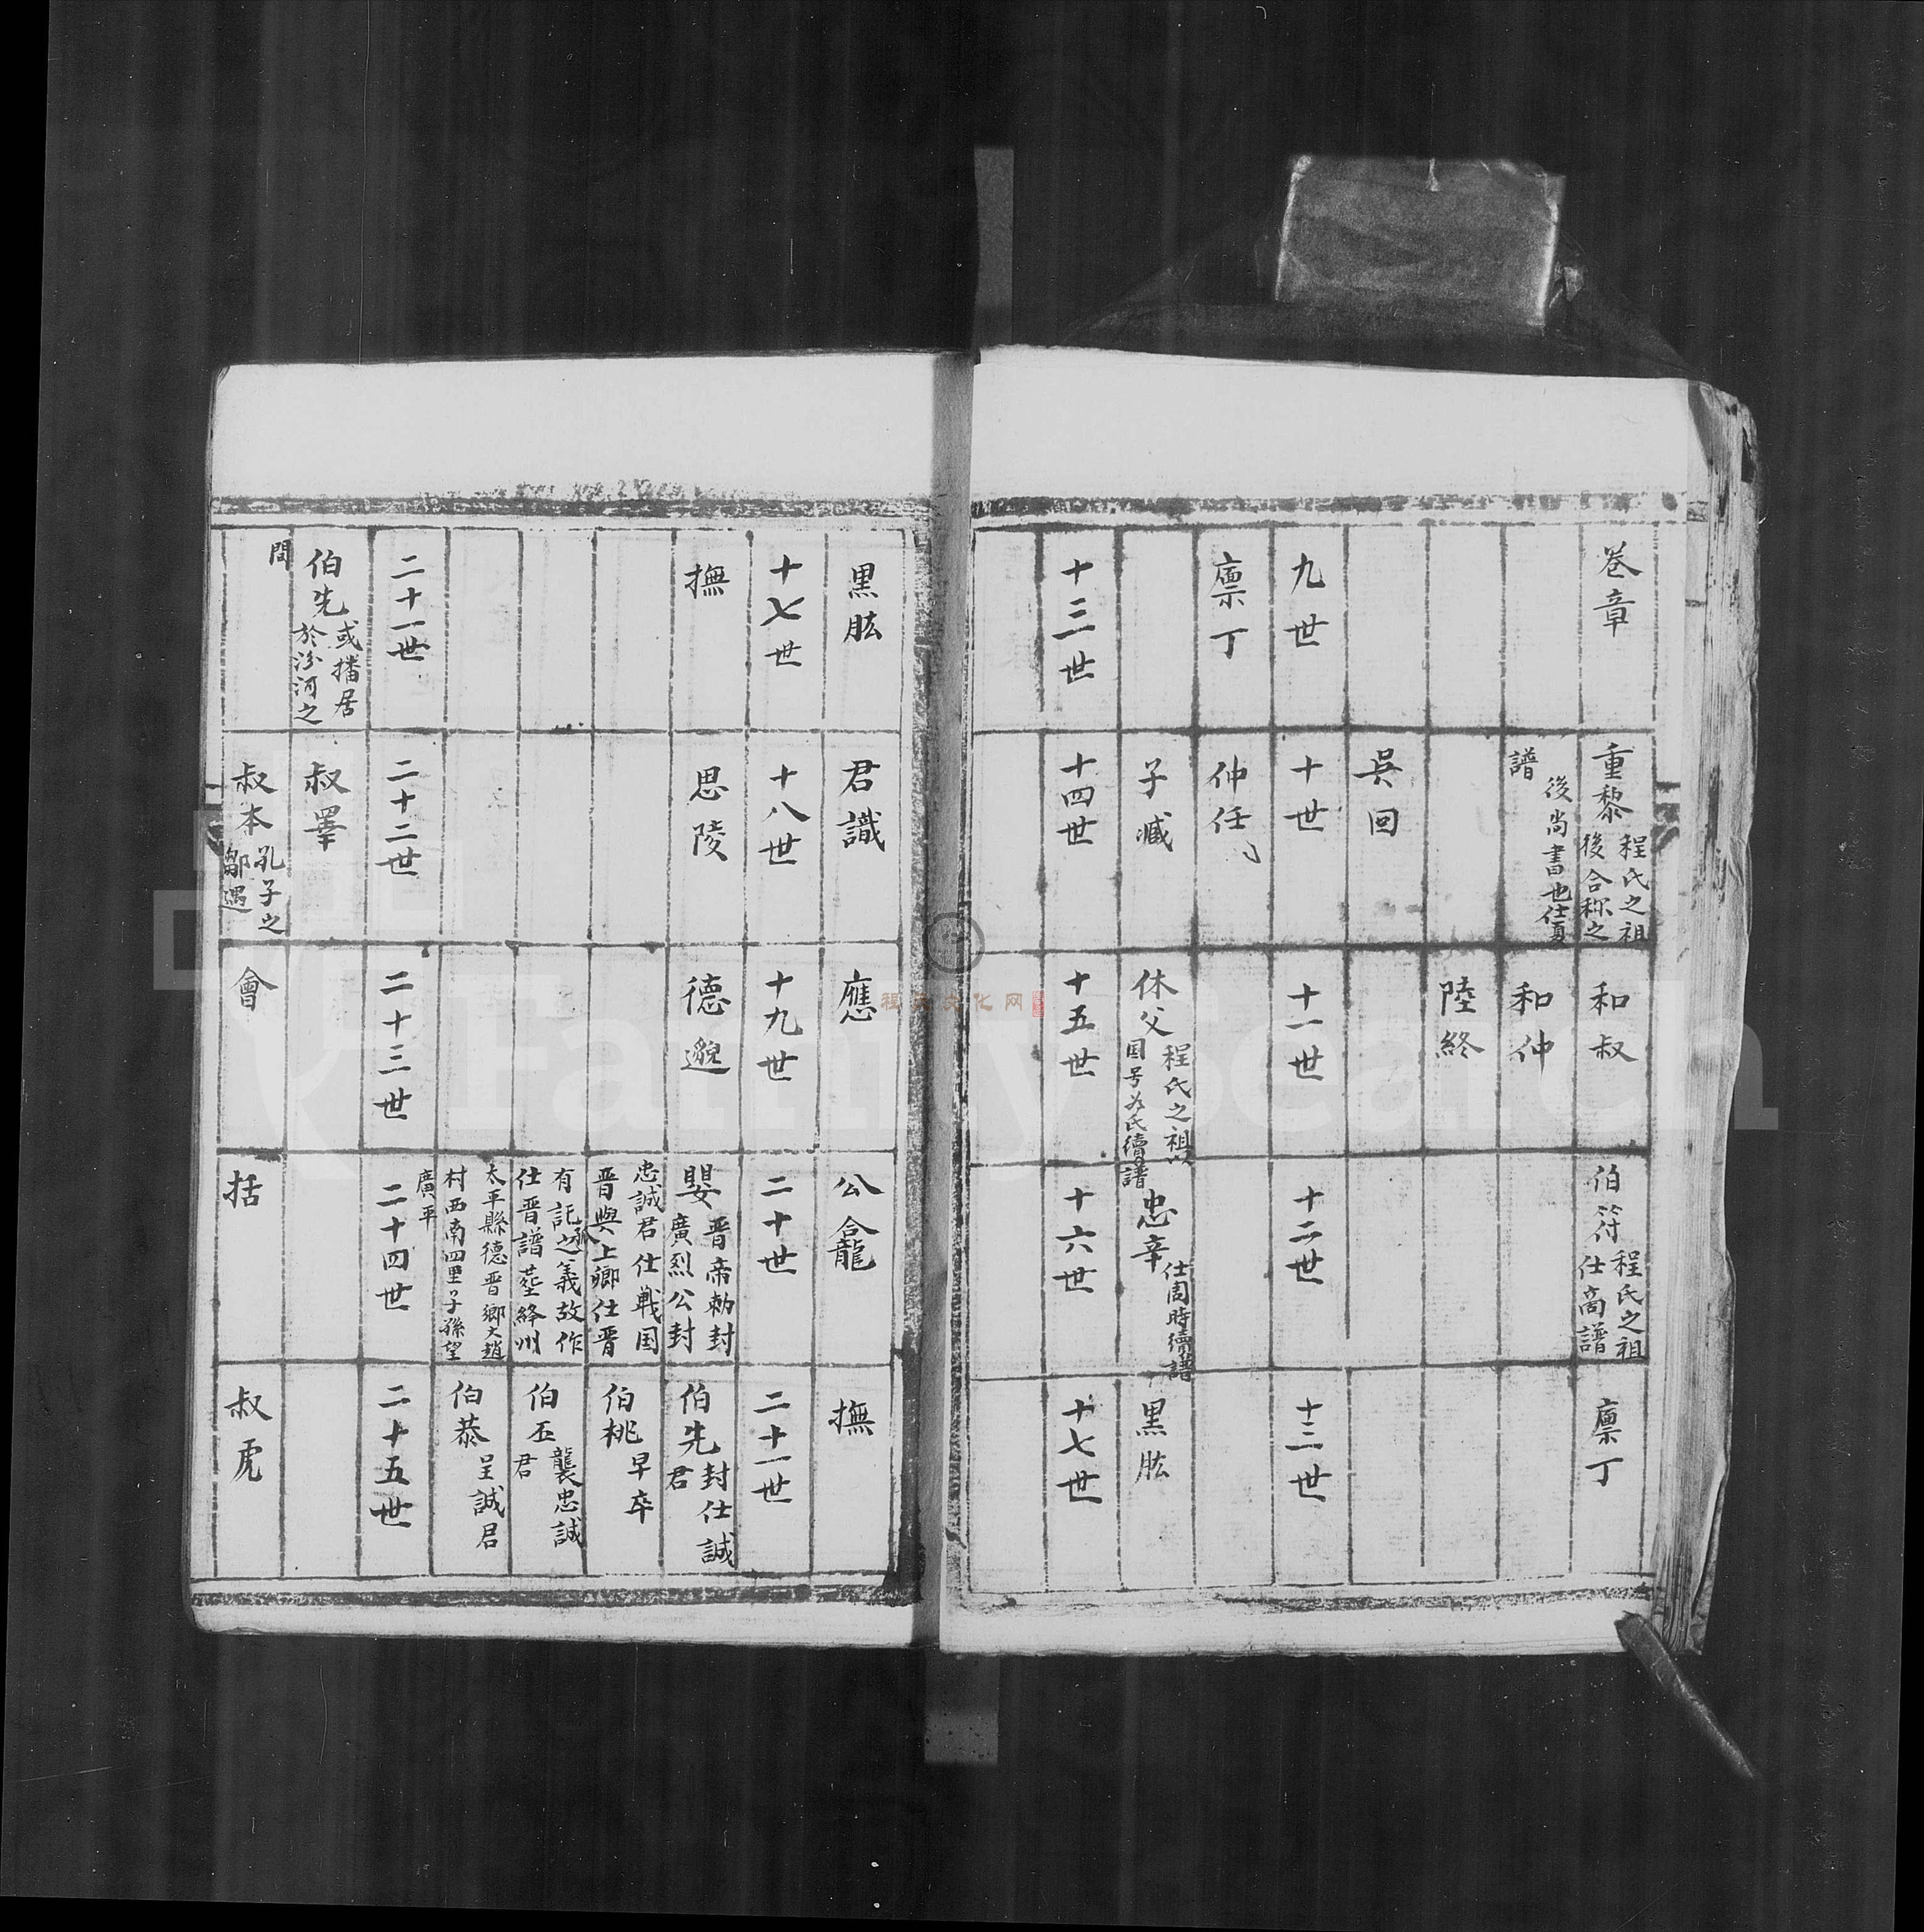 卷章
重黎 程氏之祖
後合称之
後尚書也仕夏
譜
和叔
伯符 程氏之祖
仕高譜
廪丁
和仲
陸終
吳回
九世
十世
十一世
十二世
十三世
廪丁
仲任
子臧
休父 程氏之祖以
国号为氏續譜
忠辛 仕周時續譜
黑肱
十三世
十四世
十五世
十六世
十七世
黑肱
君識
應
公龕
撫
十七世
十八世
十九世
二十世
二十一世
撫
思陵
德邈
嬰 晋帝勅封
廣烈公封
忠誠君仕戰国
晋與上卿仕晋
有託孤之義故作
仕晋譜塟絳州
太平縣德晋鄉大趙
村西南四里子孫望
廣平
伯先 封仕誠
君
伯桃 早卒
伯丕 襲忠誠
君
伯恭 呈誠君
二十一世
二十二世
二十三世
二十四世
二十五世
伯先 或播居
於汾河之
間
叔罩
叔本 孔子之
鄒遇
會
括
叔虎
程氏文化网
FamilySearch